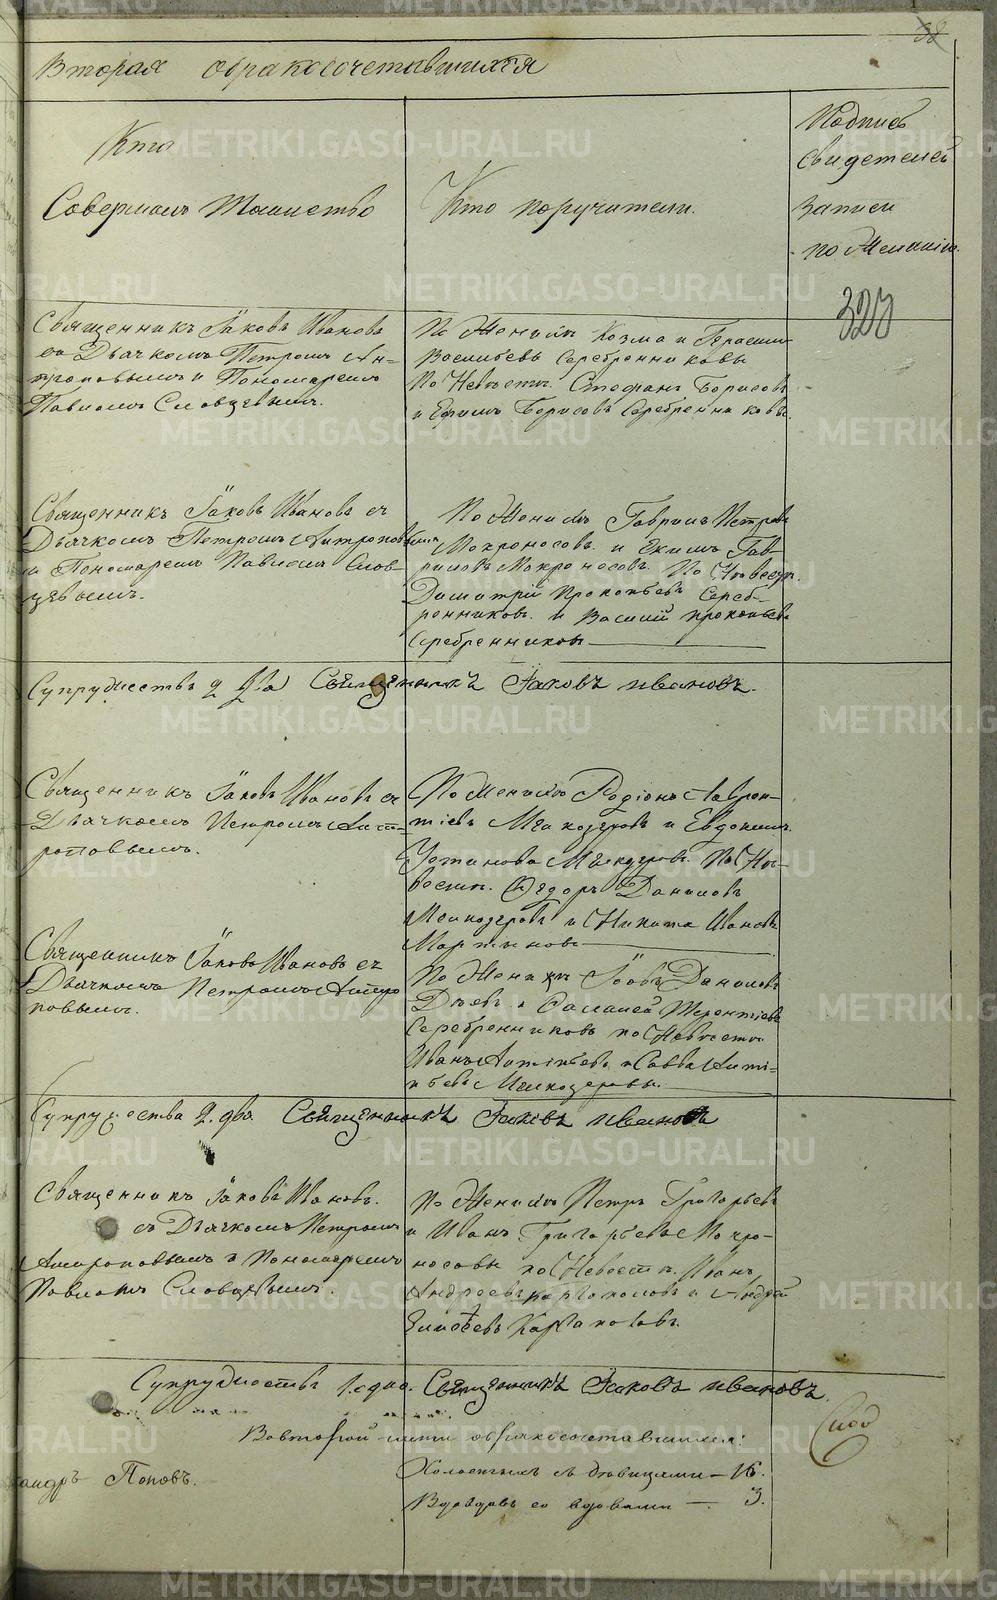 38
Вторая о бракосочетавшихся
Кто
Совершалъ Таинство
Кто поручители.
Подпись
свидетелей
записи
по Желанію.
320
Священникъ Іаковъ Ивановъ
со Дьячкомъ Петромъ Ан-
троповымъ и Пономаремъ
Павломъ Словцевымъ.
По Женихѣ Козма и Герасимъ
Васильевы Серебренниковы
По Невѣстѣ. Стефанъ Борисовъ
и Ефимъ Борисовъ Серебренниковы.
Священникъ Іаковъ Ивановъ съ
Дьячкомъ Петромъ Антроповымъ
и Пономаремъ Павломъ Слов-
цевымъ.
По Женихѣ Гаврилъ Петровъ
Мокроносовъ. и Екимъ Гав-
риловъ Мокроносовъ. По Невестѣ.
Димитрій Прокопьевъ Сереб-
ренниковъ. и Василій прокопьевъ
Серебренниковы
Супружествъ 2 Два Священникъ Іаковъ ивановъ.
Священникъ Іаковъ Ивановъ съ
Дьячкомъ Петромъ Ант-
роповымъ.
По Женихѣ Родіонъ Лаврен-
тіевъ Мелкозеровъ и Евдокимъ
Устиновъ Мелкозеровъ. По Не-
вестѣ. Ѳедоръ Даниловъ
Мелкозеровъ и Никита Ивановъ
Мартыновъ
Священникъ Іаковъ Ивановъ съ
Дьячкомъ Петромъ Антро
повымъ.
По Женихѣ Іовъ Даниловъ
Дѣевъ и Савватей Терентіевъ
Серебренниковъ по Невѣстѣ
Иванъ Антипьевъ и Савва Анти-
пьевъ Мелкозеровы.
Супружества 2. два Священникъ Іаковъ ивановъ
Священникъ Іаковъ Ивановъ.
съ Дьячкомъ Петромъ
Антроповымъ и Пономаремъ
Павломъ Словцевымъ.
По Женихѣ Петръ Григорьевъ
и Иванъ Григорьевъ Мокро-
носовы по Невестѣ. Иванъ
Андреевъ Карпаполовъ и Андрей
Карпаполовъ.
Супружество 1. едно. Священникъ Іаковъ ивановъ.
Во второй части о бракосочетавшихся:
Холостыхъ съ девицами — 16.
Вдовцовъ со вдовами — 3.
Поповъ.
METRIKI.GASO-URAL.RU